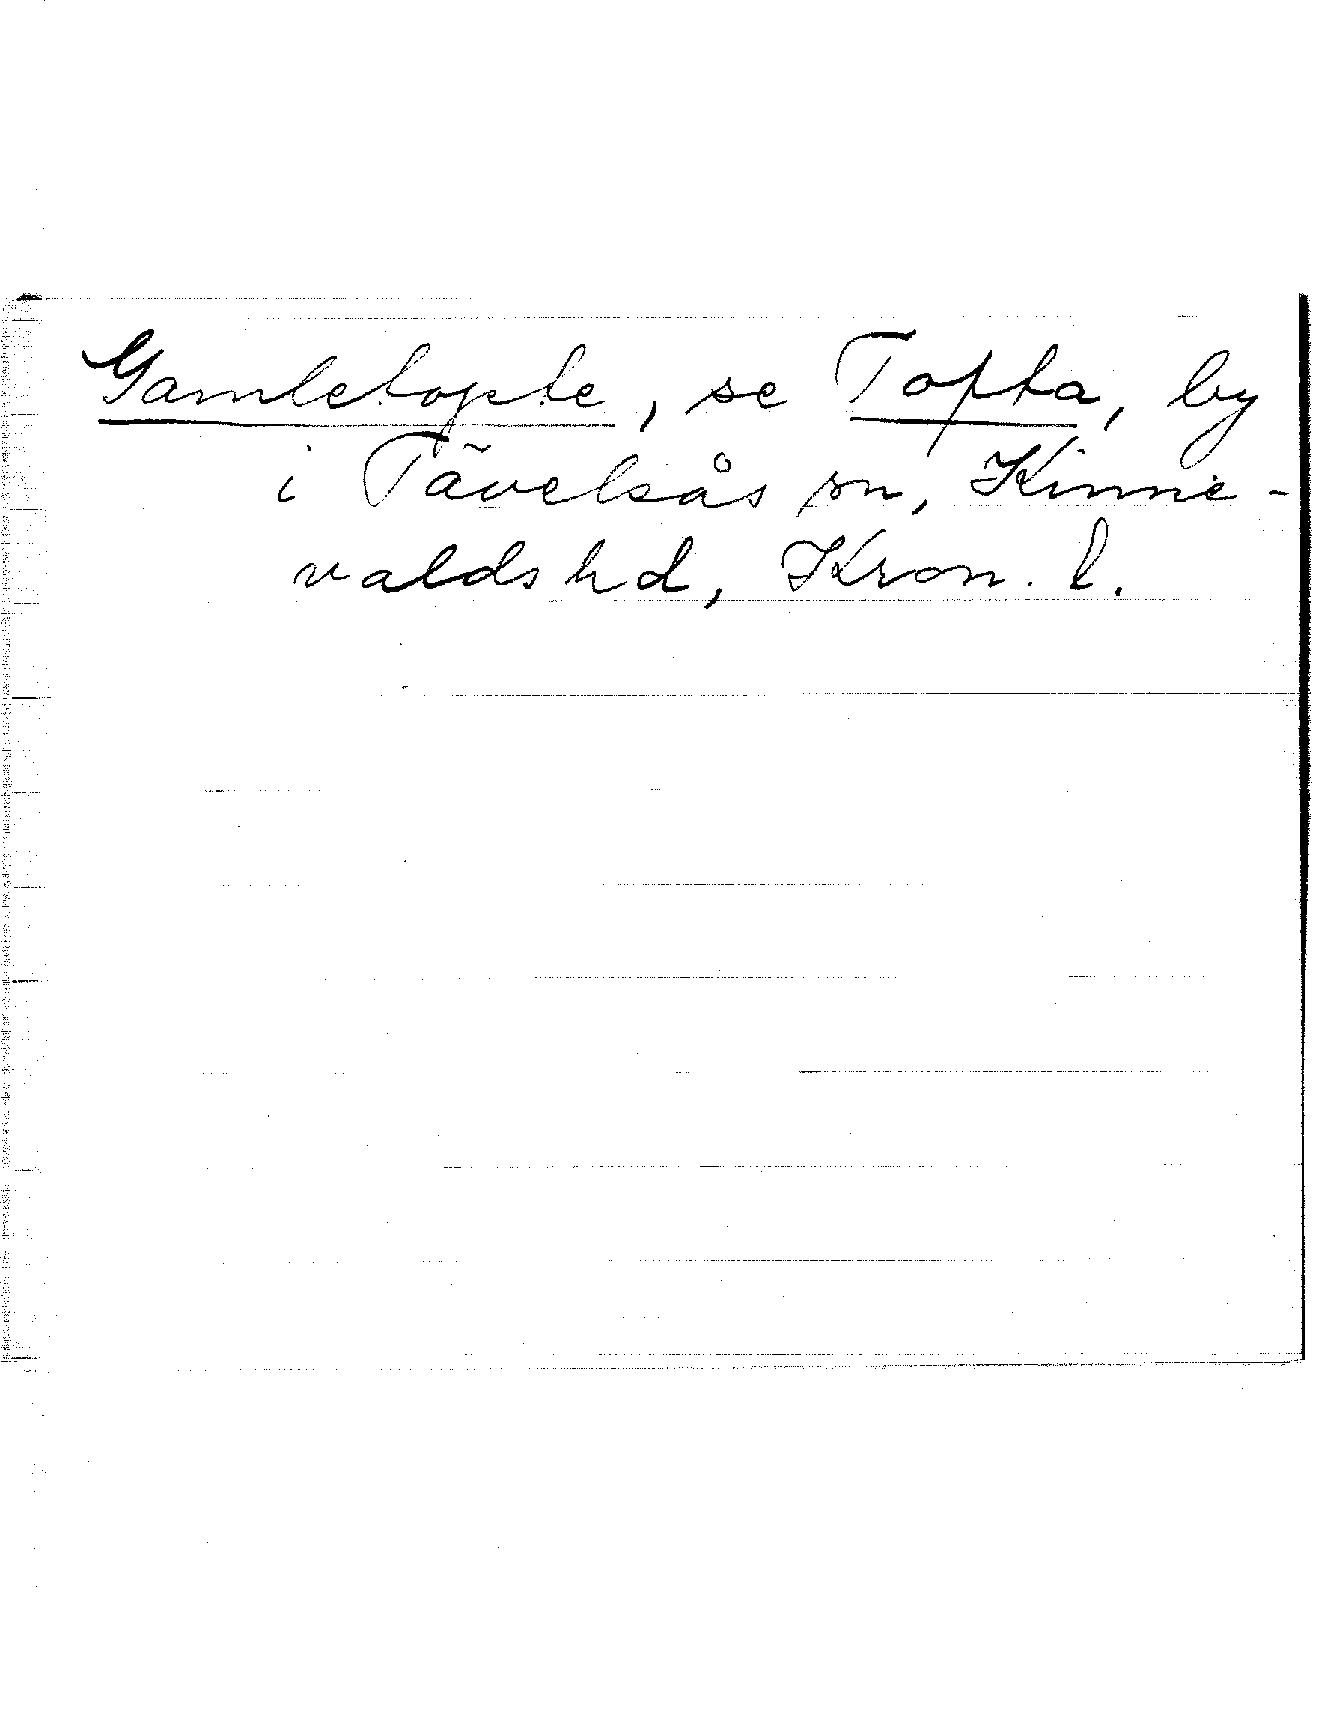 Gamletopte, se Topta, by
i Tävelsås sn, Kinne-
valds hd, Kron. l.